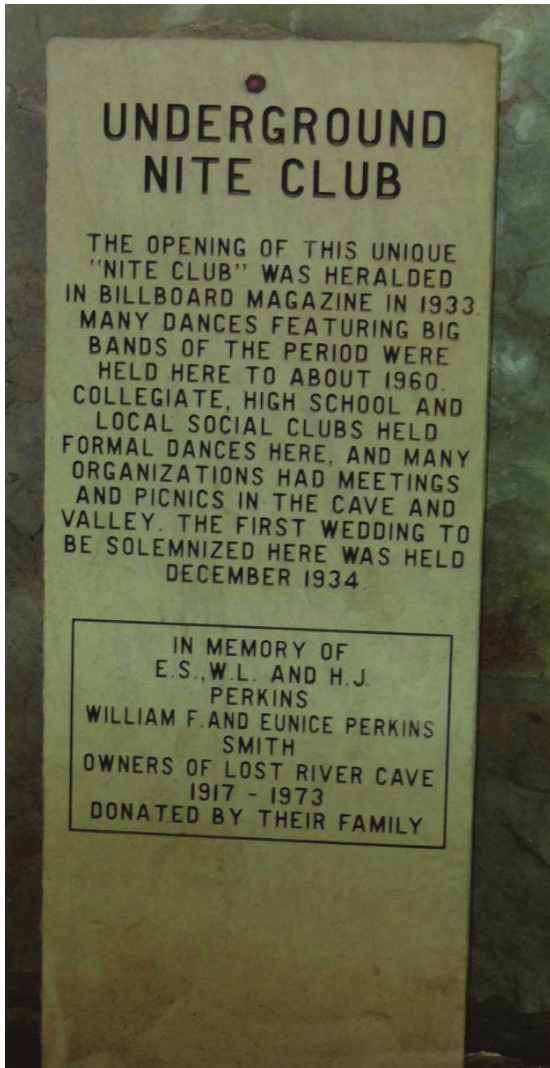 UNDERGROUND
NITE CLUB
THE OPENING OF THIS UNIQUE
"NITE CLUB" WAS HERALDED
IN BILLBOARD MAGAZINE IN 1933.
MANY DANCES FEATURING BIG
BANDS OF THE PERIOD WERE
HELD HERE TO ABOUT 1960.
COLLEGIATE, HIGH SCHOOL AND
LOCAL SOCIAL CLUBS HELD
FORMAL DANCES HERE, AND MANY
ORGANIZATIONS HAD MEETINGS
AND PICNICS IN THE CAVE AND
VALLEY. THE FIRST WEDDING TO
BE SOLEMNIZED HERE WAS HELD
DECEMBER 1934.
IN MEMORY OF
E.S.,W.L. AND H.J.
PERKINS
WILLIAM F. AND EUNICE PERKINS
SMITH
OWNERS OF LOST RIVER CAVE
1917 - 1973
DONATED BY THEIR FAMILY